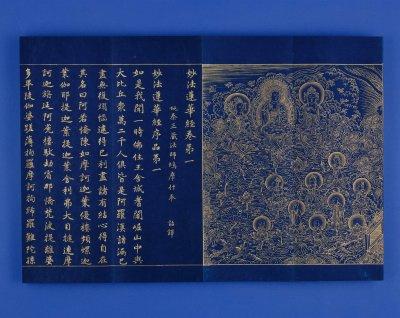 妙法蓮華經卷第一
姚秦三藏法師鳩摩什奉 詔譯
妙法蓮華經序品第一
如是我聞一時佛住王舍城耆闍崛山中與
大比丘眾萬二千人俱皆是阿羅漢諸漏已
盡無復煩惱逮得己利盡諸有結心得自在
其名曰阿若憍陳如摩訶迦葉優樓頻螺迦
葉伽耶迦葉那提迦葉舍利弗大目揵連摩
訶迦旃延阿㝹樓馱劫賓那憍梵波提離婆
多畢陵伽婆蹉薄拘羅摩訶拘絺羅難陀孫